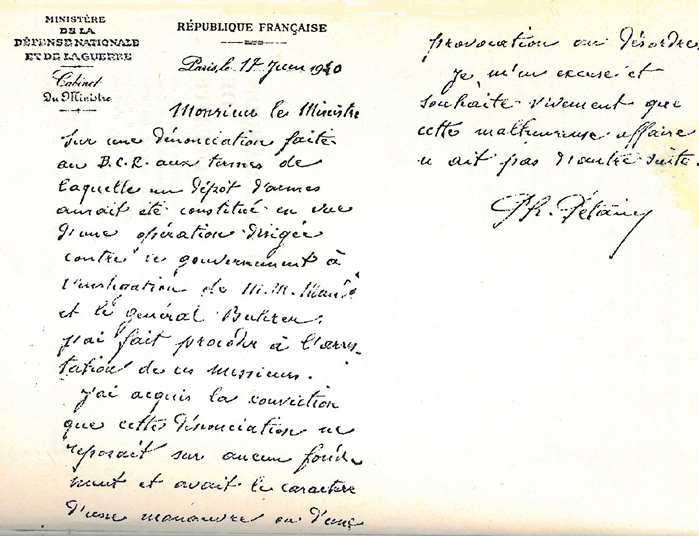 MINISTÈRE
DE LA
DÉFENSE NATIONALE
ET DE LA GUERRE
Cabinet
Du Ministre
RÉPUBLIQUE FRANÇAISE
Paris le 17 Juin 1940
Monsieur le Ministre
Sur une dénonciation faite
au B.C.R. aux termes de
laquelle un dépôt d'armes
aurait été constitué en vue
d'une opération dirigée
contre le gouvernement à
l'instigation de M.M. Mandel
et le général Buhrer,
j'ai fait procéder à l'arres-
tation de ces messieurs.
J'ai acquis la conviction
que cette dénonciation ne
reposait sur aucun fonde-
ment et avait le caractère
d'une manœuvre ou d'une
provocation au désordre.
Je m'en excuse et
souhaite vivement que
cette malheureuse affaire
n'ait pas d'autre suite.
Ph. Pétain